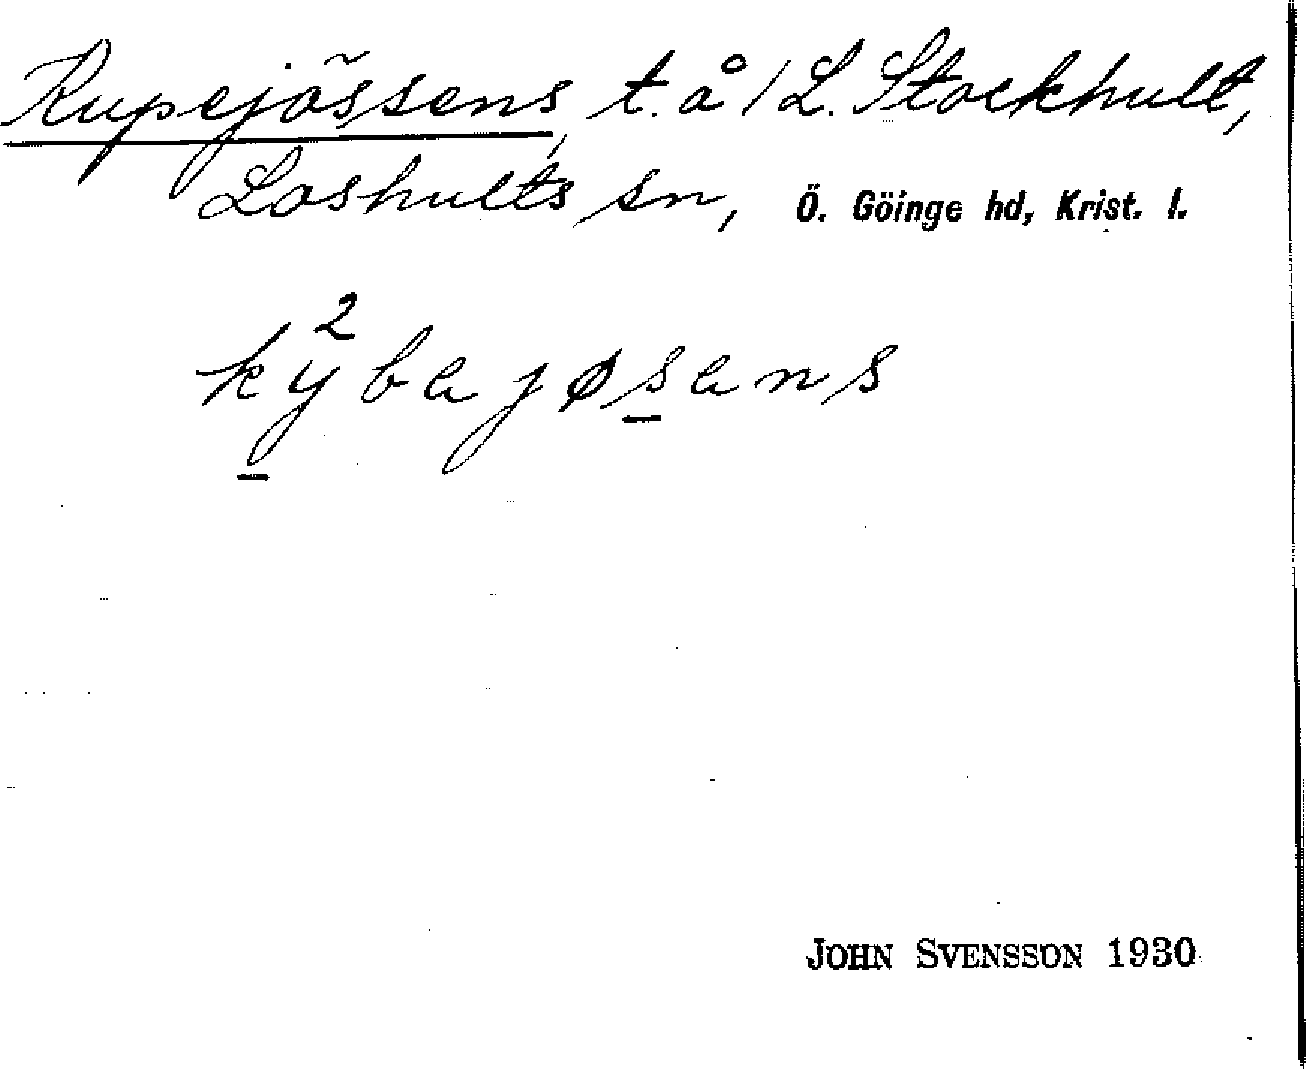 Kupejössens, t. å / L. Stockhult,
Loshults sn, Ö. Göinge hd, Krist. l.
ky²bajøsans
JOHN SVENSSON 1930